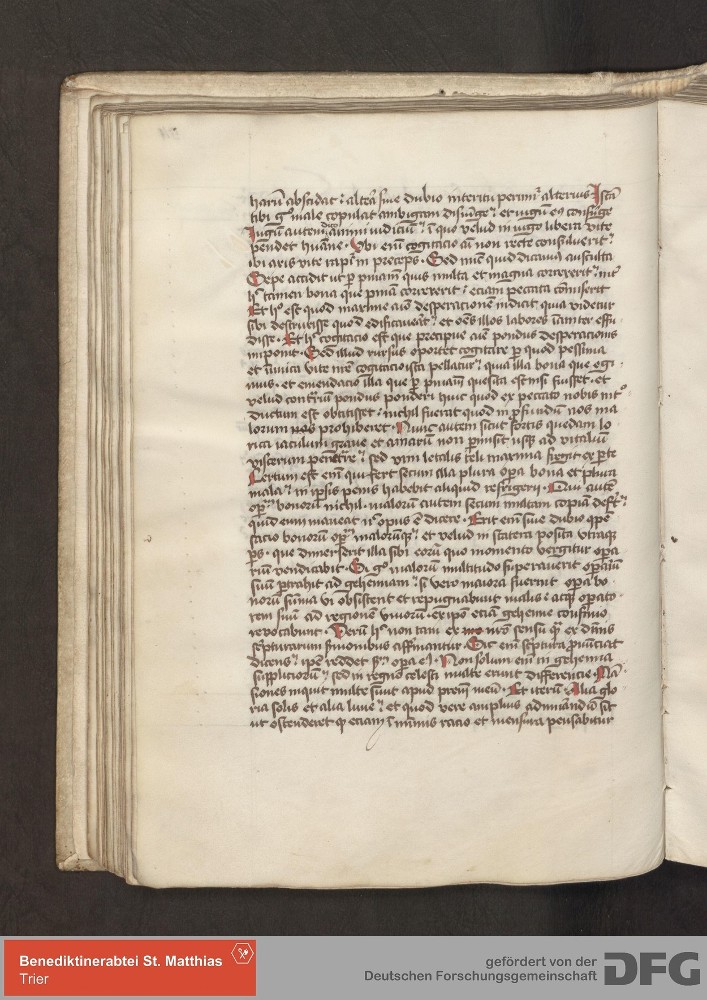 harū abscidat altera sine dubio interitu perimit alterius Istā
tibi gͦ male copulat ambigam disiūge et iugū eiͫ confrīge
Iugū autem dico animi iudiciū ī quo velud in iugo libera vite
pendet hūane Ubi enī cogitacio aū non recte consuluerit
ibi aris vite rapit in preceps Sed nūc quid dicam ausculta
Sepe accidit ut per pniam quis multa et magna correxerit īt
hͨ tamen bona que priā correxerit eciam peccata cōmiserit
Et hͦ est quod maxime aīo desperacionem indicat quia videtur
sibi destruxisse quod edificaverat et oēs illos labores inaniter effu
disse Et hͨ cogitacio est que precipue aīe pondus desperacionis
imponit Sed illud rursus oportet cogitare per quod pessima
et inimica vite nrē cogitacio ista pellatur quia illa bona que egi
mus et emendacio illa que per pniam quesita est nisi fuisset et
velud contrariū pondus ponderi huic quod ex peccato nobis int
ductum est obstitisset nichil fuerat quod in profundū nos ma
lorum prohiberet Nunc autem sicut fortis quedam lo
rica iaculum grave et amarū non permisit usqꝫ ad vitaliū
viscerum penetrare sed vim letalis teli maxima fregit ex parte
Certum est enī qui fert secum illa plura opera bona et plura
mala in ipsis penis habebit aliquid refrigerii Qui autē
operū bonorū nichil malorum autem secum multam copiā defert
quid eum maneat nō opus ē dicere Erit enī sine dubio cōpē
sacio bonorū operū malorūqꝫ et velud in statera posita utraqꝫ
pars que dimerserit illa sibi eorū quo momento vergitur opera
riū vendicabit Si gͦ malorū multitudo superaverit operariū
suū pertrahit ad gehennam si vero maiora fuerint opera bo
norū summa vi obsistent et repugnabunt malis atqꝫ operato
rem suū ad regionem vivorū ex ipso eciam gehenne confinio
revocabunt Verū hͨ non tam ex nrō sensu quā ex divinis
scripturarum sermonibus affirmantur Sic enī scriptura pronunciat
dicens ipse reddet scdm opera Non solum enī in gehenna
suppliciorū sed in regno celesti multe erunt differencie Mā
siones inquit multe sunt apud patrem meū Et iterū Alia glo
ria solis et alia lune et quod vere amplius admirandū sit
ut ostenderet qꝫ eciam ī minimis racio et mensura pensabitur
Benediktinerabtei St. Matthias
Trier
gefördert von der
Deutschen Forschungsgemeinschaft
DFG